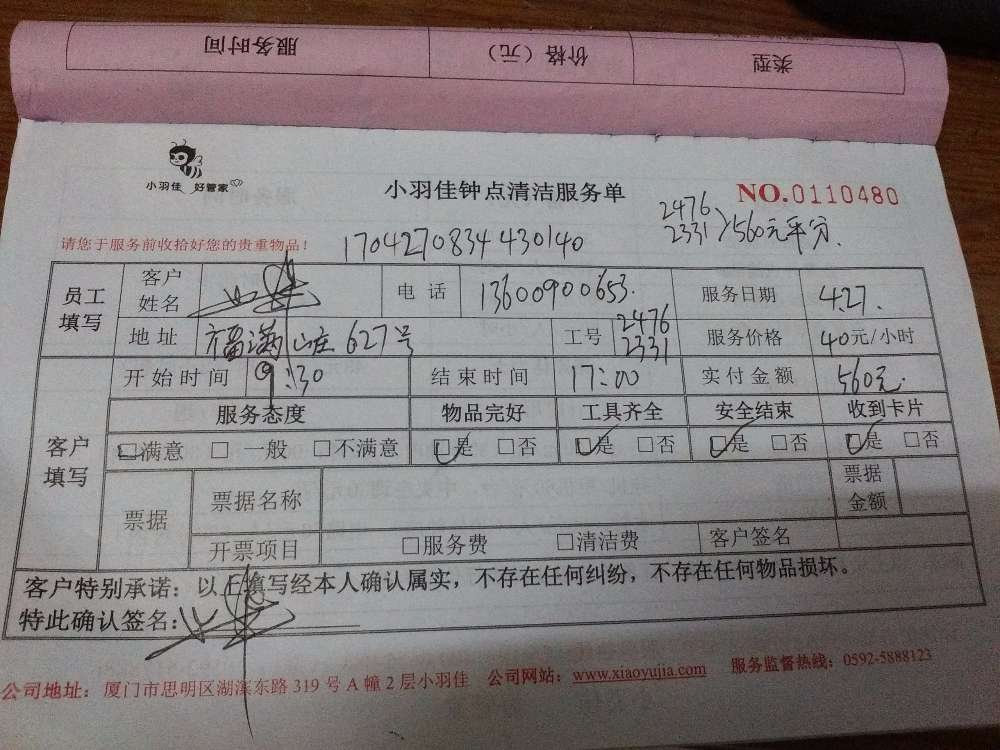 服务时间 价格（元） 类型
小羽佳 好管家
小羽佳钟点清洁服务单
NO.0110480
请您于服务前收拾好您的贵重物品！
1704270834430140
2476
2331 560元平分.
员工填写 客户姓名 电话 13600900653. 服务日期 4.27.
地址 福满山庄627号 工号 2476 2331 服务价格 40元/小时
客户填写 开始时间 9:30 结束时间 17:00 实付金额 560元.
服务态度 物品完好 工具齐全 安全结束 收到卡片
□满意 □一般 □不满意 □是 □否 □是 □否 □是 □否 □是 □否
票据 票据名称 票据金额
开票项目 □服务费 □清洁费 客户签名
客户特别承诺：以上填写经本人确认属实，不存在任何纠纷，不存在任何物品损坏。
特此确认签名：
公司地址：厦门市思明区湖滨东路319号A幢2层小羽佳 公司网站：www.xiaoyujia.com 服务监督热线：0592-5888123